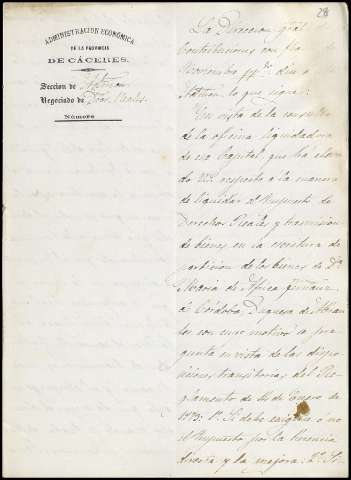 28
ADMINISTRACION ECONÓMICA
DE LA PROVINCIA
DE CÁCERES.
Seccion de
Negociado de Dros. Reales
Número
La Direccion gral
Contribuciones con fha
Noviembre ppdo. dice á
lo que sigue:
En vista de la consulta
de la oficina liquidadora
de esa Capital que há eleva
do V.S. respecto á la manera
de liquidar el Impuesto de
Derechos Reales y trasmision
de bienes en la escritura de
particion de los bienes de Dª
Maria de Africa Fernandz
de Córdoba, Duquesa de Abran
tes con cuyo motivo se pre
gunta en vista de las dispo
siciones transitorias del Re
glamento de 14 de Enero de
1873: 1º Si debe exigirse ó no
el Impuesto por la herencia
directa y la mejora: 2º Si